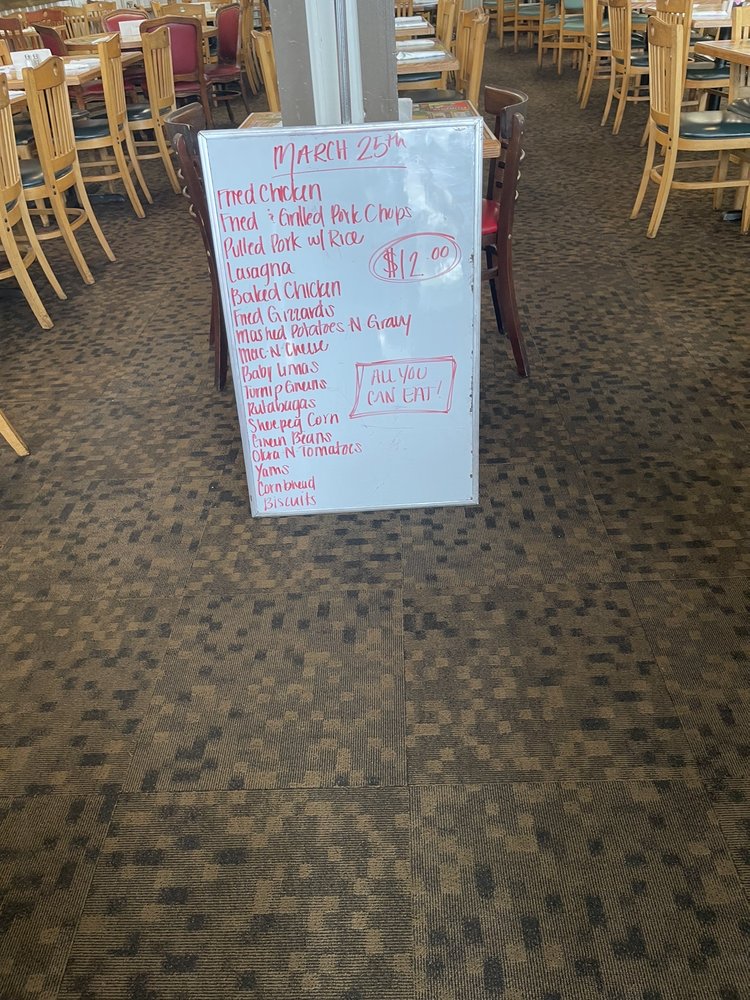 MARCH 25th
Fried Chicken
Fried & Grilled Pork Chops
Pulled Pork w/ Rice
Lasagna
$12.00
Baked Chicken
Fried Gizzards
Mashed Potatoes N Gravy
Mac-N-Cheese
Baby Limas
Turnip Greens
Rutabagas
ALL YOU
CAN EAT!
Shoepeg Corn
Green Beans
Okra N Tomatoes
Yams
Cornbread
Biscuits